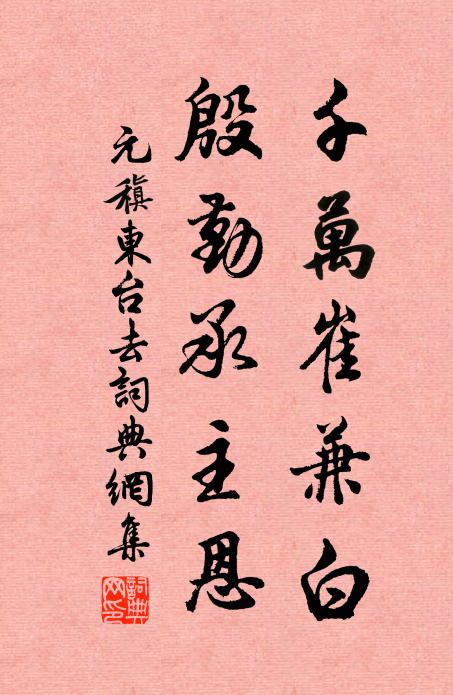 千萬崔兼白
殷勤承主恩
元稹東台去詞典網集
詞典網印